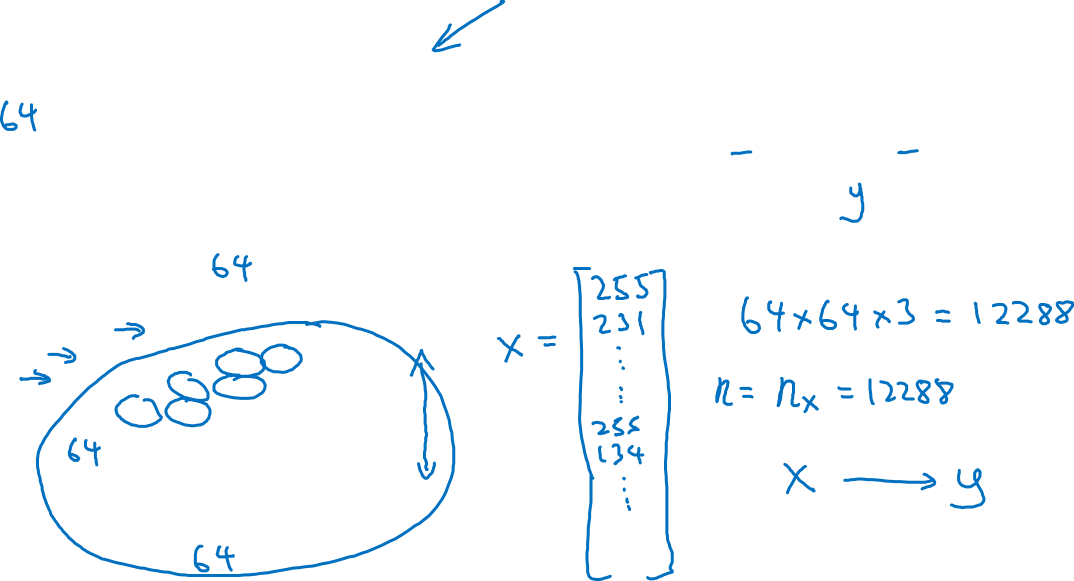 64
- -
y
64
64
64
x = [255
231
⋮
⋮
255
134
⋮
]
64×64×3 = 12288
n = nₓ = 12288
x ⟶ y